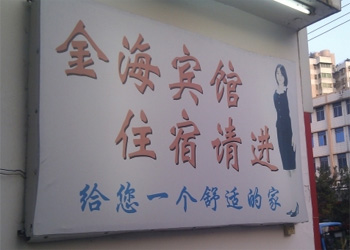 金海宾馆
住宿请进
给您一个舒适的家